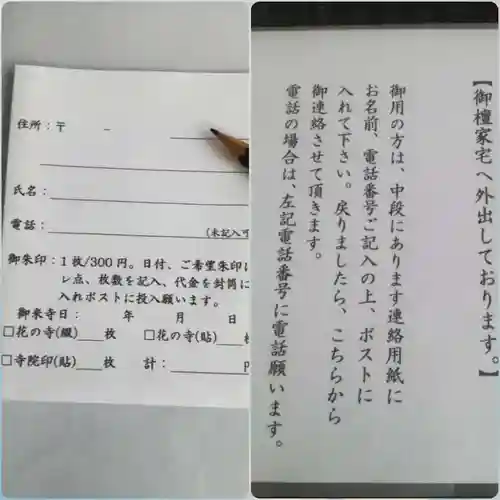 住所：〒　－
氏名：
電話：
(未記入可
御朱印：1枚/300円。日付、ご希望朱印に
レ点、枚数を記入、代金を封筒に
入れポストに投入願います。
御来寺日：　年　月　日
□花の寺(綴)　枚　□花の寺(貼)
□寺院印(貼)　枚　計：
【御檀家宅へ外出しております。】
御用の方は、中段にあります連絡用紙に
お名前、電話番号ご記入の上、ポストに
入れて下さい。戻りましたら、こちらから
御連絡させて頂きます。
電話の場合は、左記電話番号に電話願います。